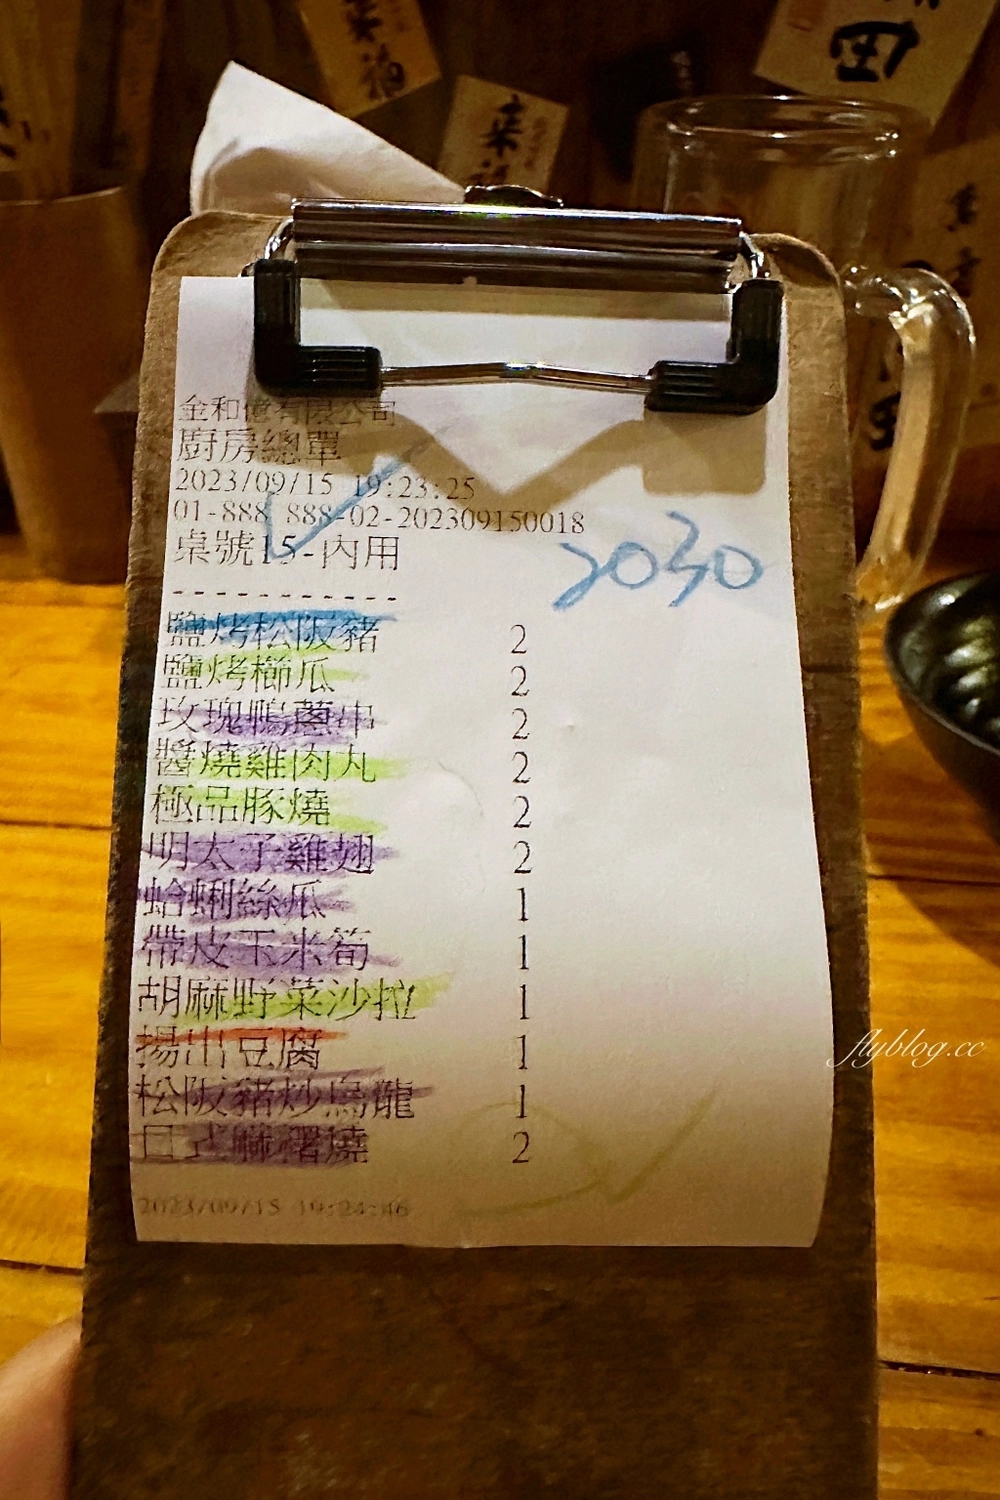 金和億有限公司
廚房總單
2023/09/15 19:23:25
01-888 888-02-202309150018
桌號15-內用
2030
-----------
鹽烤松阪豬 2
鹽烤櫛瓜 2
玫瑰鴨蔥串 2
醬燒雞肉丸 2
極品豚燒 2
明太子雞翅 2
蛤蜊絲瓜 1
帶皮玉米筍 1
胡麻野菜沙拉 1
揚出豆腐 1
松阪豬炒烏龍 1
日式麻糬燒 2
2023/09/15 19:24:46
flyblog.cc
田